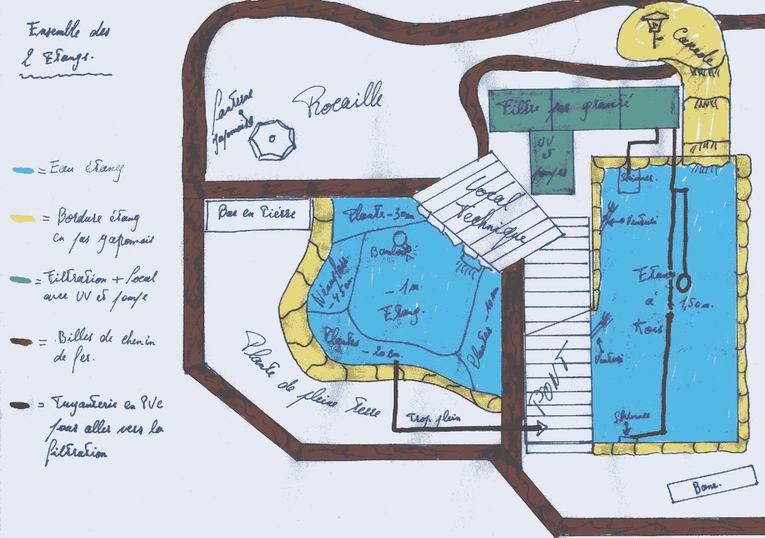 Ensemble des
2 Etangs.
= Eau étang
= Bordure étang
en pas japonais
= Filtration + Local
avec UV et pompe
= Billes de chemin
de fer.
= Tuyauterie en PVC
pour aller vers la
filtration
Lanterne
japonaise
Rocaille
Cascade
Filtre
UV
et
pompe
Local
Technique
Skimmer
Bac en Pierre
Plante
Bambou
- 1m
Etang.
Plantes
- 20 cm
Plantes
Plante de pleine terre
Trop plein
PONT
Venturi
Etang
à
Kois
- 1,50m.
Venturi
Skimmer
Banc.